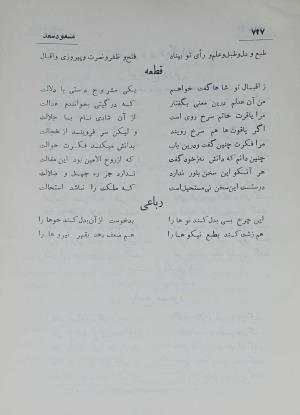 ۷۴۷
مسعود سعد
طبع و دل و طبل و علم و رأی تو بیناد
فتح و ظفر و نصرت و پیروزی و اقبال
قطعه
ز اقبال تو شاها گفت خواهم
یکی مشروح بیتی با دلالت
من آن عدلم درین معنی بگفتار
که در گیتی بخوانندم عدالت
مرا یاقوت خاتم سرخ روی است
از آن شادی نام با جلالت
اگر یاقوت ها هم سرخ رویند
و لیکن سر فرویند از خجالت
مرا فکرت چنین گفت و درین باب
بدانش میکند فکرت حوالت
چنین دانم که دانش نغز خود گفت
که از روح الامین بود این مقالت
هر آنکو این سخن باور ندارد
ندارد جز ره جهل و ضلالت
درستست این سخن بی مستحیل است
که ملکت را نباشد استحالت
رباعی
این چرخ بسی بدل کند نو ها را
بدخوست از آن بدل کند خوها را
هم زشت کند بطبع نیکو ها را
هم ضعف دهد بقهر نیرو ها را